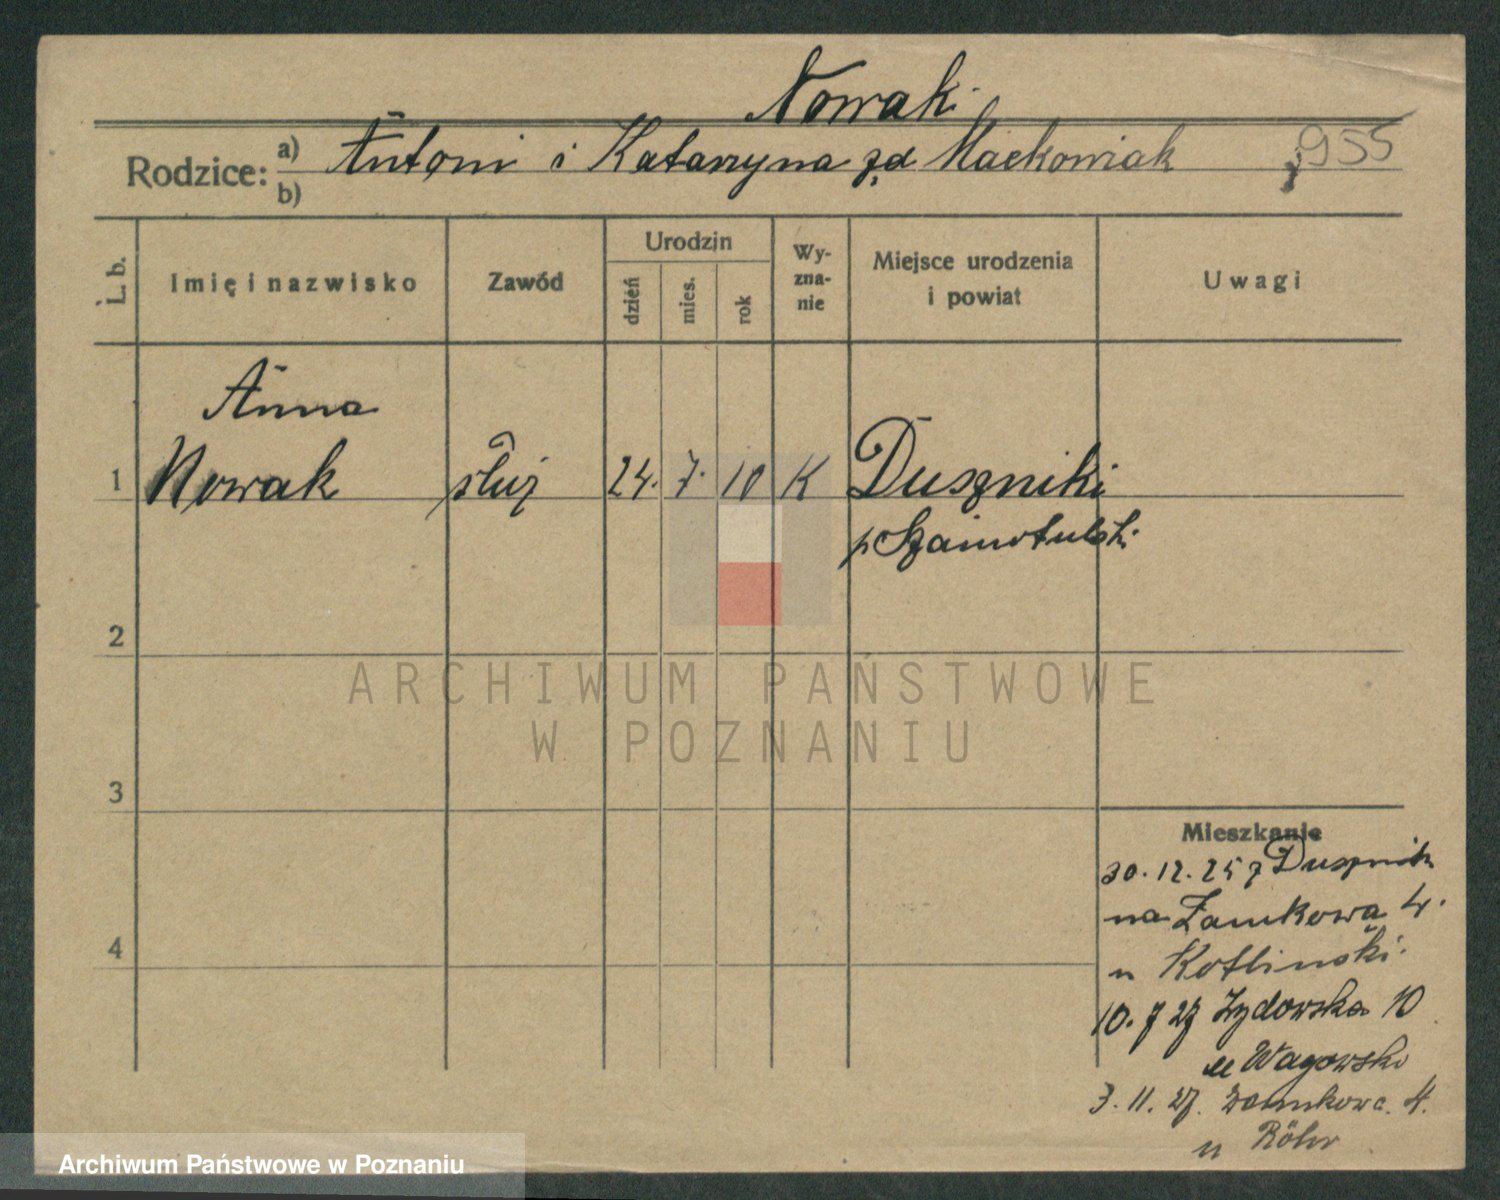 Nowak
Rodzice: a) Antoni i Katarzyna zd Maćkowiak 955
b)
L. b. Imię i nazwisko Zawód Urodzin dzień mies. rok Wy-zna-nie Miejsce urodzenia i powiat Uwagi
Anna
1 Nowak służ 24. 7. 10 K Duszniki
p Szamotulski
2
ARCHIWUM PAŃSTWOWE
W POZNANIU
3
Mieszkanie
30.12.25 z Dusznik
na Zamkową 4.
u Kotlinski
4
10.7 27 Żydowska 10
u Wagowski
3.11.27. Zamkowa 4.
u Röhr
Archiwum Państwowe w Poznaniu